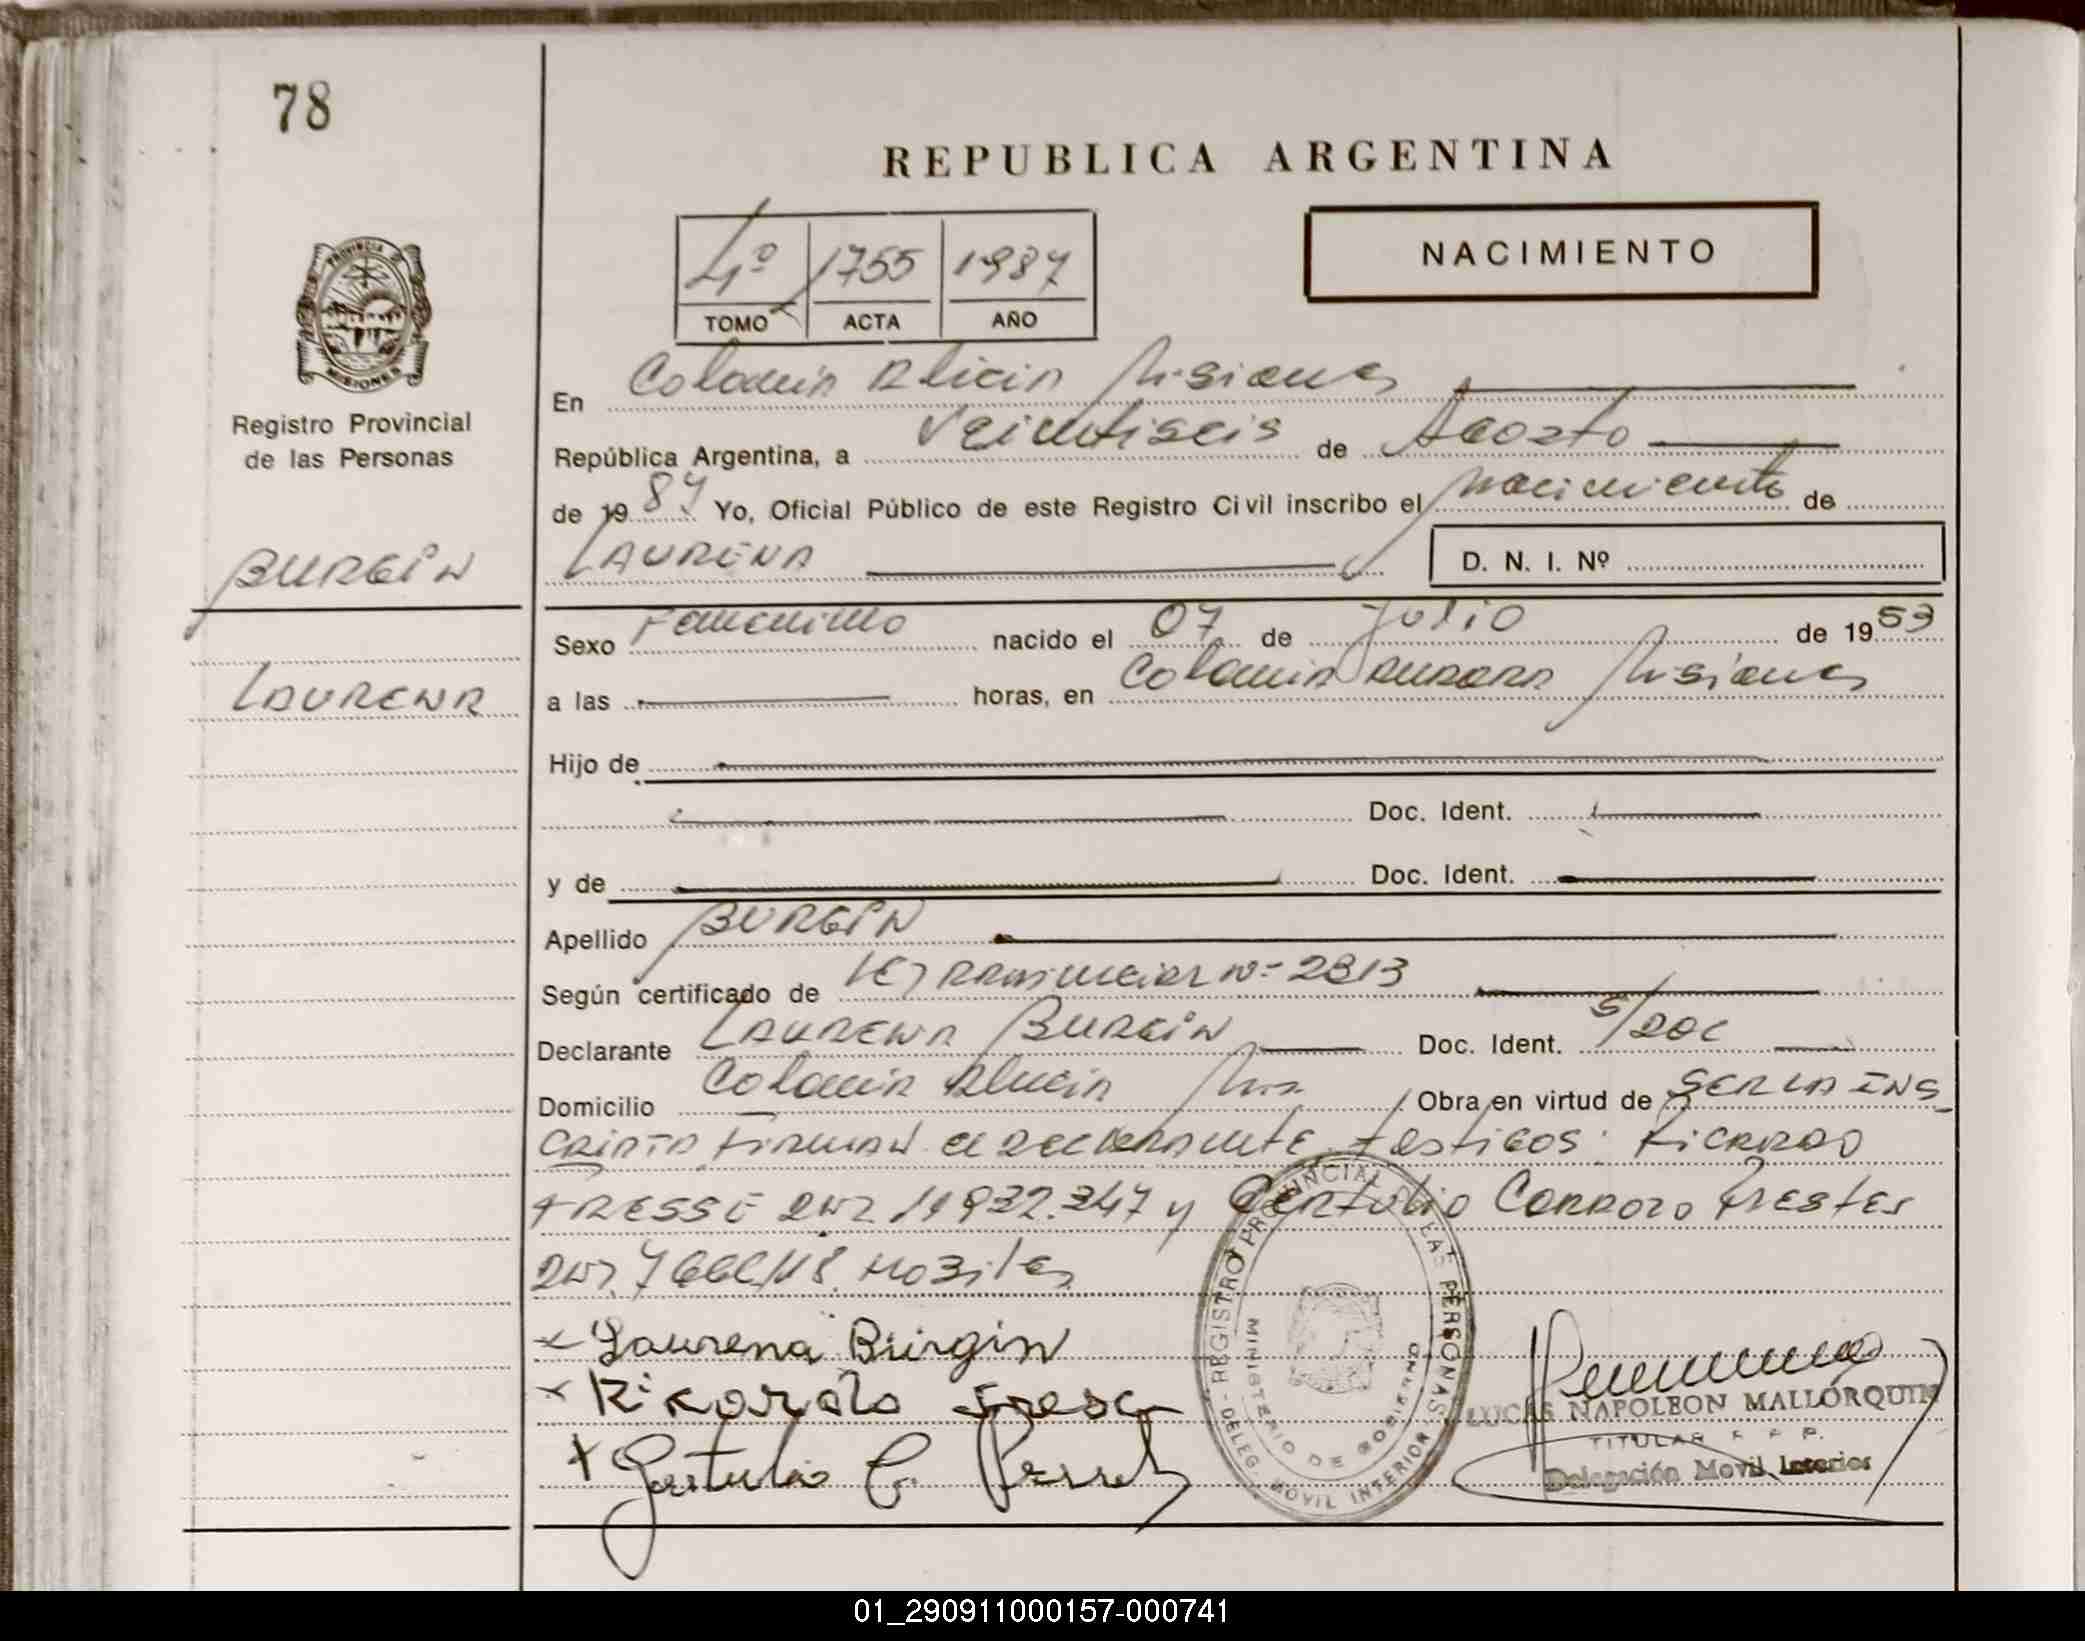 78
REPUBLICA ARGENTINA
4º 1755 1987
TOMO ACTA AÑO
NACIMIENTO
PROVINCIA DE
MISIONES
Registro Provincial
de las Personas
En Colonia Alicia Misiones
República Argentina, a Veintiseis de Agosto
de 1987 Yo, Oficial Público de este Registro Civil inscribo el nacimiento de
LAURENA D. N. I. Nº
BURGIN
LAURENA
Sexo Femenino nacido el 07 de Julio de 1953
a las horas, en Colonia Aurora Misiones
Hijo de
Doc. Ident.
y de Doc. Ident.
Apellido BURGIN
Según certificado de Ley Provincial Nº 2813
Declarante LAURENA BURGIN Doc. Ident. S/DOC
Domicilio Colonia Alicia Mns. Obra en virtud de SER LA INS
CRIPTA. FIRMAN el DECLARANTE. testigos: RICARDO
FRESSE DNI. 14932.347 y Gertulio Cardozo Prestes
DNI.
Laurena Bürgin
Rikardo Frese
Gertulio C.
REGISTRO PROVINCIAL DE LAS PERSONAS
MINISTERIO DE GOBIERNO
DELEG. MOVIL INTERIOR
LUCAS NAPOLEON MALLORQUIN
TITULAR R. P. P.
Delegación Movil Interior
01_290911000157-000741